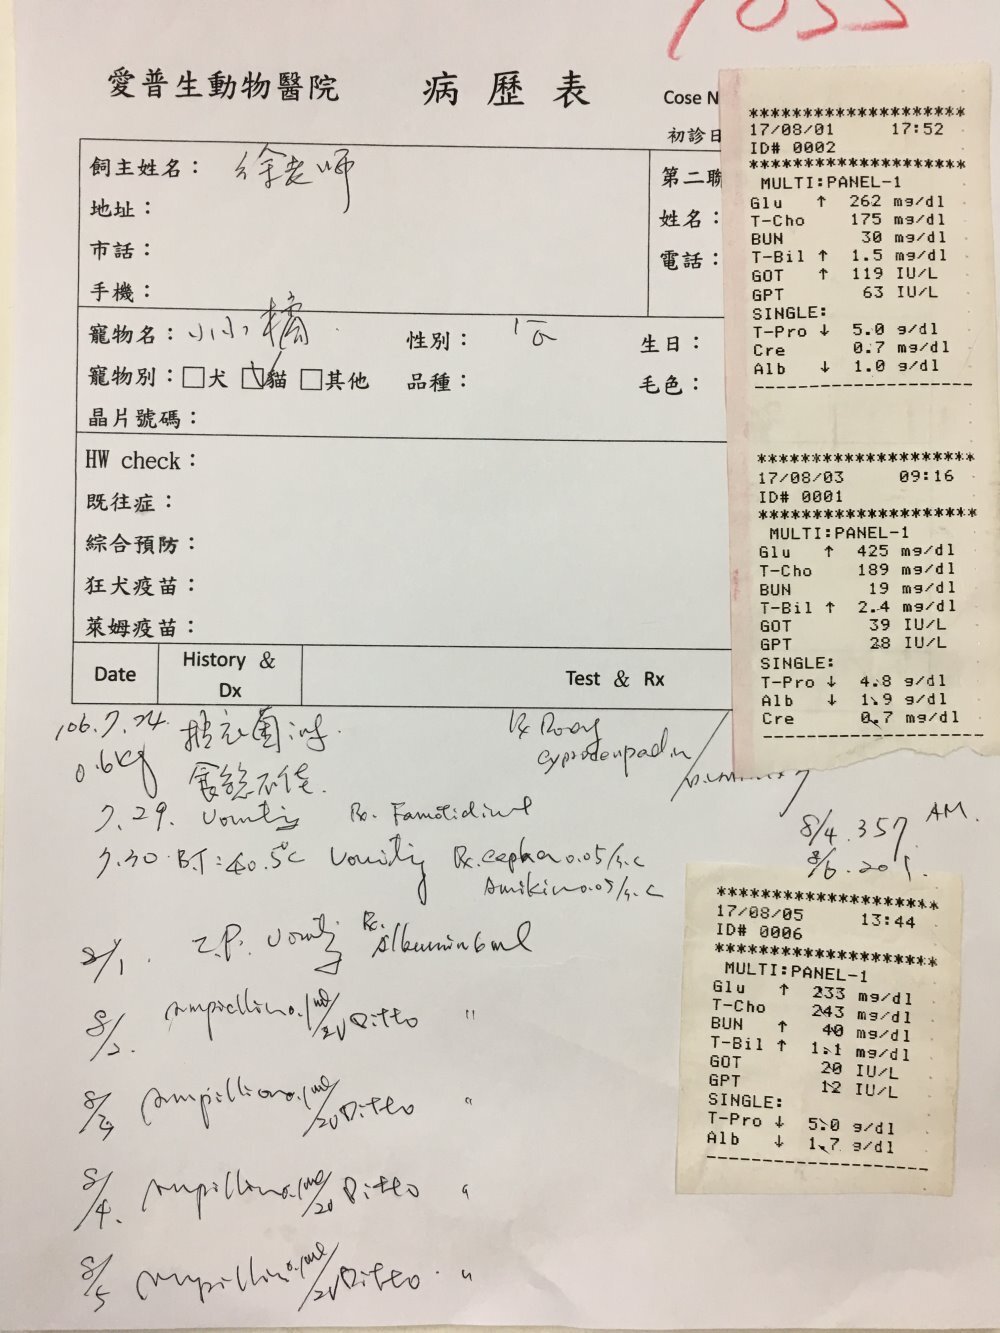 愛普生動物醫院 病歷表 Cose N
初診日
飼主姓名： 徐老師
地址：
市話：
手機：
第二聯
姓名：
電話：
寵物名： 小小橘 性別： 生日：
寵物別：□犬 □貓 □其他 品種： 毛色：
晶片號碼：
HW check：
既往症：
綜合預防：
狂犬疫苗：
萊姆疫苗：
Date History & Dx Test & Rx
106.7.24.
0.6kg 食慾不佳.
7.29. Vomiting Rx. Famotidine
7.30 BT:40.5°C Vomiting Rx. cepha 0.05/s.c
Amikin 0.05/s.c
8/1. I.P. Vomiting Rx. Albumin 6ml
8/2. Ditto "
8/3 Ditto "
8/4. Ditto "
8/5 Ditto "
********************
17/08/01 17:52
ID# 0002
********************
MULTI:PANEL-1
Glu ↑ 262 mg/dl
T-Cho 175 mg/dl
BUN 30 mg/dl
T-Bil ↑ 1.5 mg/dl
GOT ↑ 119 IU/L
GPT 63 IU/L
SINGLE:
T-Pro ↓ 5.0 g/dl
Cre 0.7 mg/dl
Alb ↓ 1.0 g/dl
--------------------
********************
17/08/03 09:16
ID# 0001
********************
MULTI:PANEL-1
Glu ↑ 425 mg/dl
T-Cho 189 mg/dl
BUN 19 mg/dl
T-Bil ↑ 2.4 mg/dl
GOT 39 IU/L
GPT 28 IU/L
SINGLE:
T-Pro ↓ 4.8 g/dl
Alb ↓ 1.9 g/dl
Cre 0.7 mg/dl
--------------------
8/4.357 AM.
8/6.201.
********************
17/08/05 13:44
ID# 0006
********************
MULTI:PANEL-1
Glu ↑ 233 mg/dl
T-Cho 243 mg/dl
BUN ↑ 40 mg/dl
T-Bil ↑ 1.1 mg/dl
GOT 20 IU/L
GPT 12 IU/L
SINGLE:
T-Pro ↓ 5.0 g/dl
Alb ↓ 1.7 g/dl
--------------------